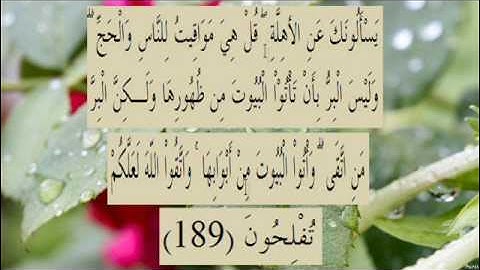 يَسْأَلُونَكَ عَنِ الأهِلَّةِ ۖ قُلْ هِيَ مَوَاقِيتُ لِلنَّاسِ وَالْحَجِّ ۗ
وَلَيْسَ الْبِرُّ بِأَنْ تَأْتُوْاْ الْبُيُوتَ مِن ظُهُورِهَا وَلَـكِنَّ الْبِرَّ
مَنِ اتَّقَى ۗ وَأْتُواْ الْبُيُوتَ مِنْ أَبْوَابِهَا ۚ وَاتَّقُواْ اللّهَ لَعَلَّكُمْ
تُفْلِحُونَ (189)